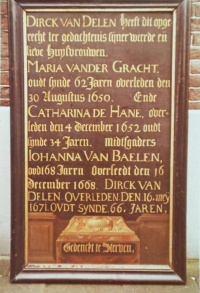 DIRCK VAN DELEN Heeft dit opge
recht ter gedachtenis sijner weerde en
lieve Huysvrouwen.
MARIA VANDER GRACHT,
oudt sijnde 62 Jaren overleden den
30 Augustus 1650. Ende
CATHARINA DE HANE, over-
leden den 4 December 1652 oudt
sijnde 34 Jaren. midtsgaders
IOHANNA VAN BAELEN,
oudt 68 Jaren overleedt den 16
December 1668. DIRCK VAN
DELEN OVERLEDEN DEN. 16. mey
1671. OVDT SYNDE. 66. JAREN.
Gedenckt te Sterven.